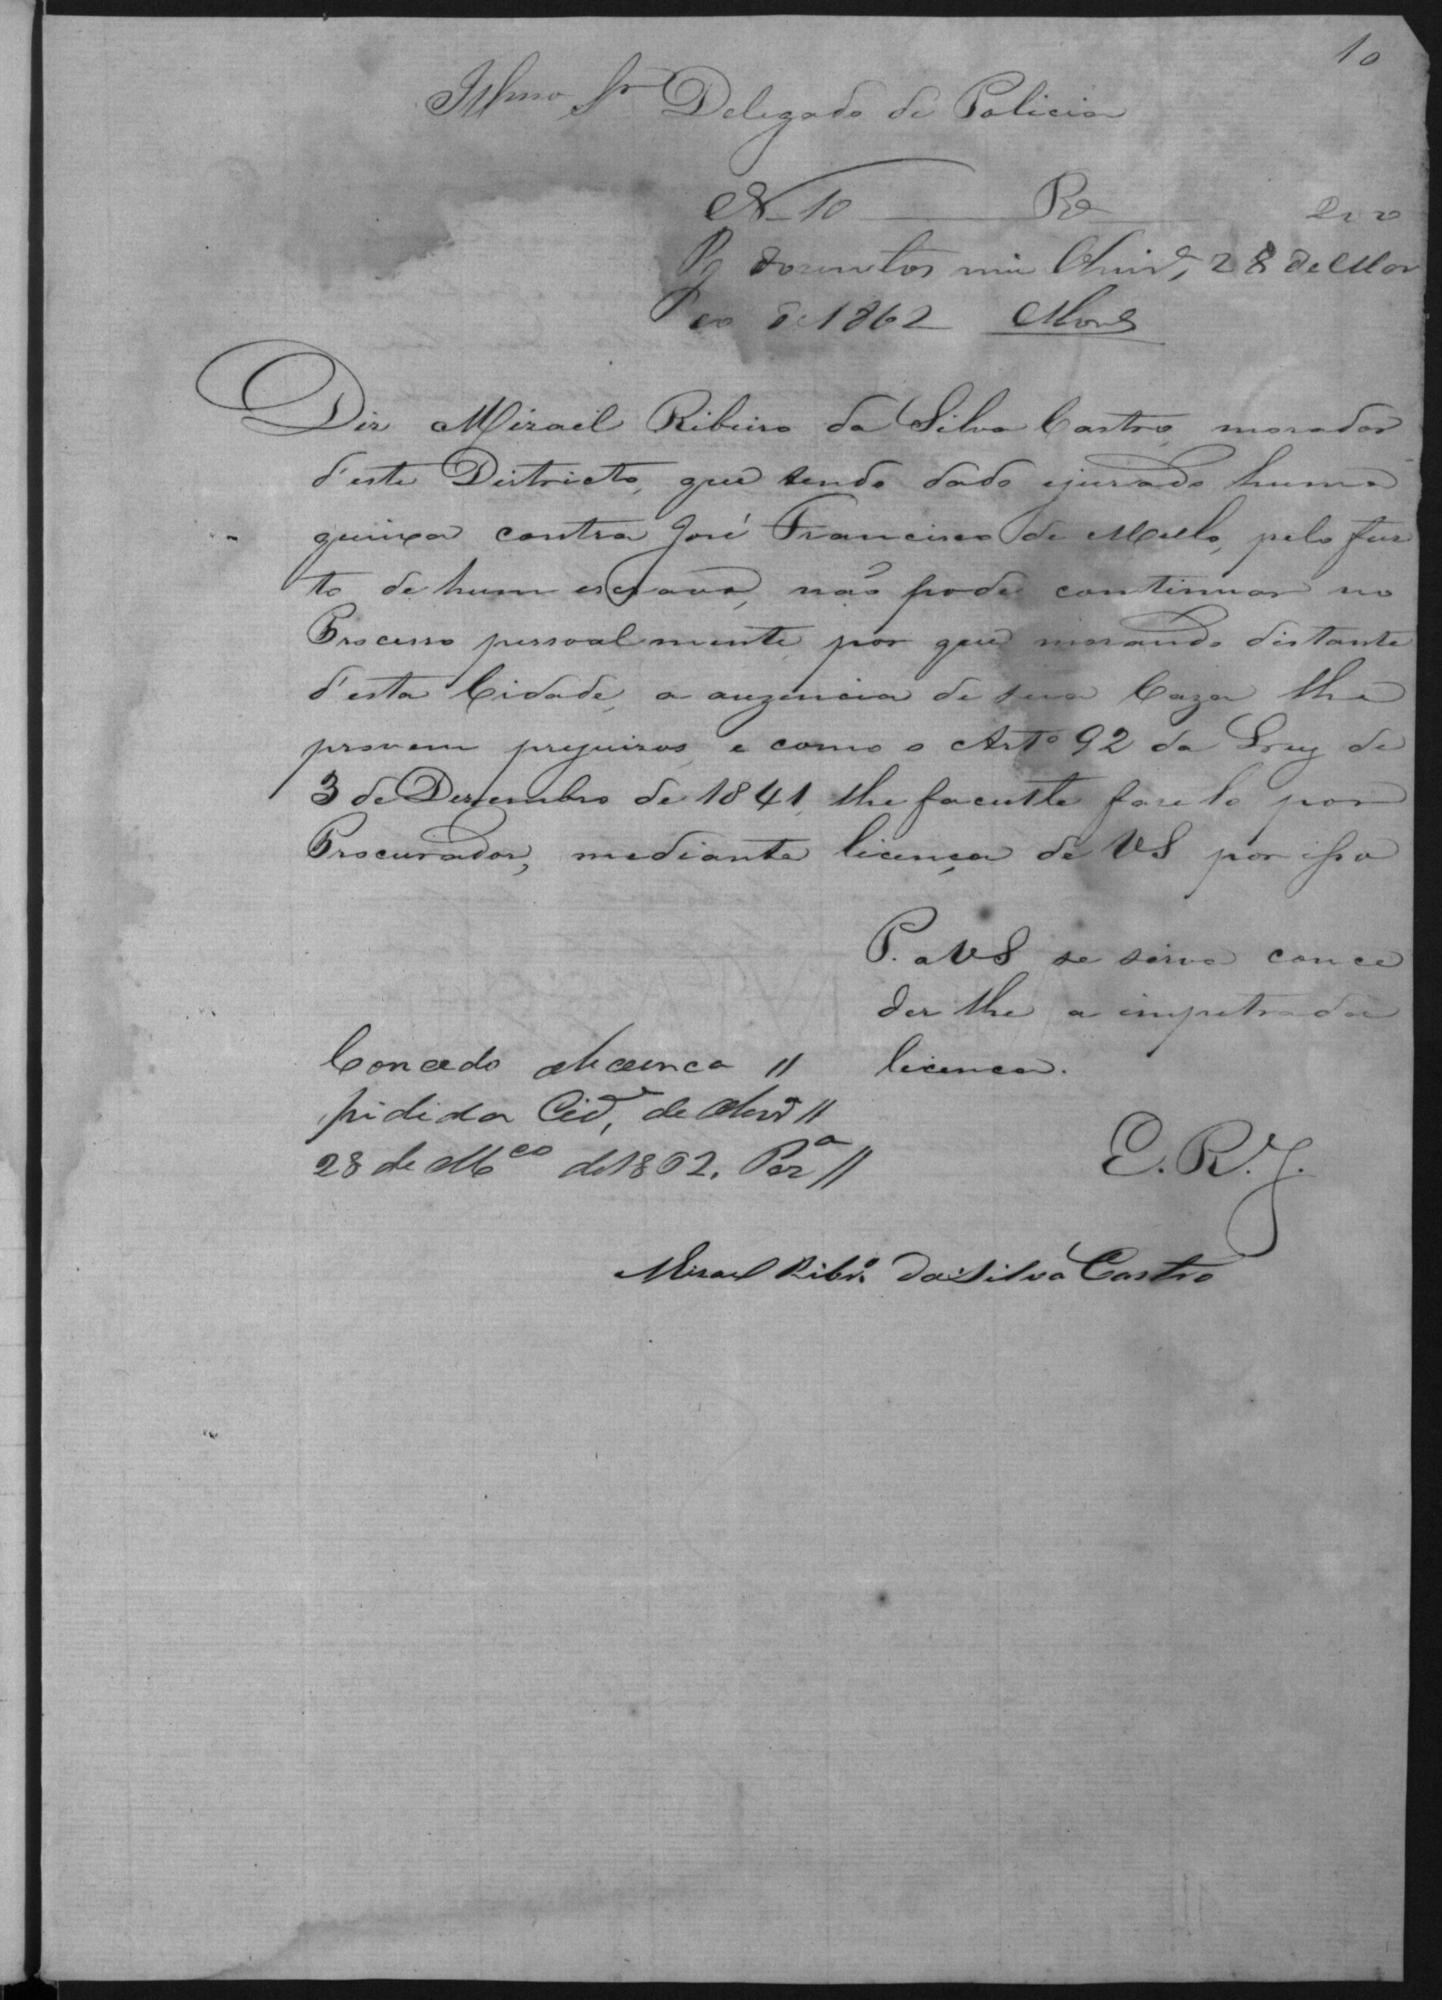 10
Illmo Sr Delegado de Policia
N 10 Rs 200
Pg dozentos reis 28 de Mar
ço de 1862
Diz Mizael Ribeiro da Silva Castro, morador
d'este Districto, que tendo dado ejurado huma
queixa contra José Francisco de Mello, pelo fur
to de hum escravo, não pode continuar no
Processo pessoalmente, por que morando distante
d'esta Cidade, a auzencia de sua Caza lhe
provem prejuizos, e como o Artº 92 da Ley de
3 de Dezembro de 1841, lhe faculte fazelo por
Procurador, mediante licença de VS por isso
P. a VS se sirva conce
der lhe a impetrada
licenca.
Concedo alicenca //
pidida Cid.e de //
28 de Mco de 1862. Perª //
E. R. J.
Mizael Ribrº da Silva Castro